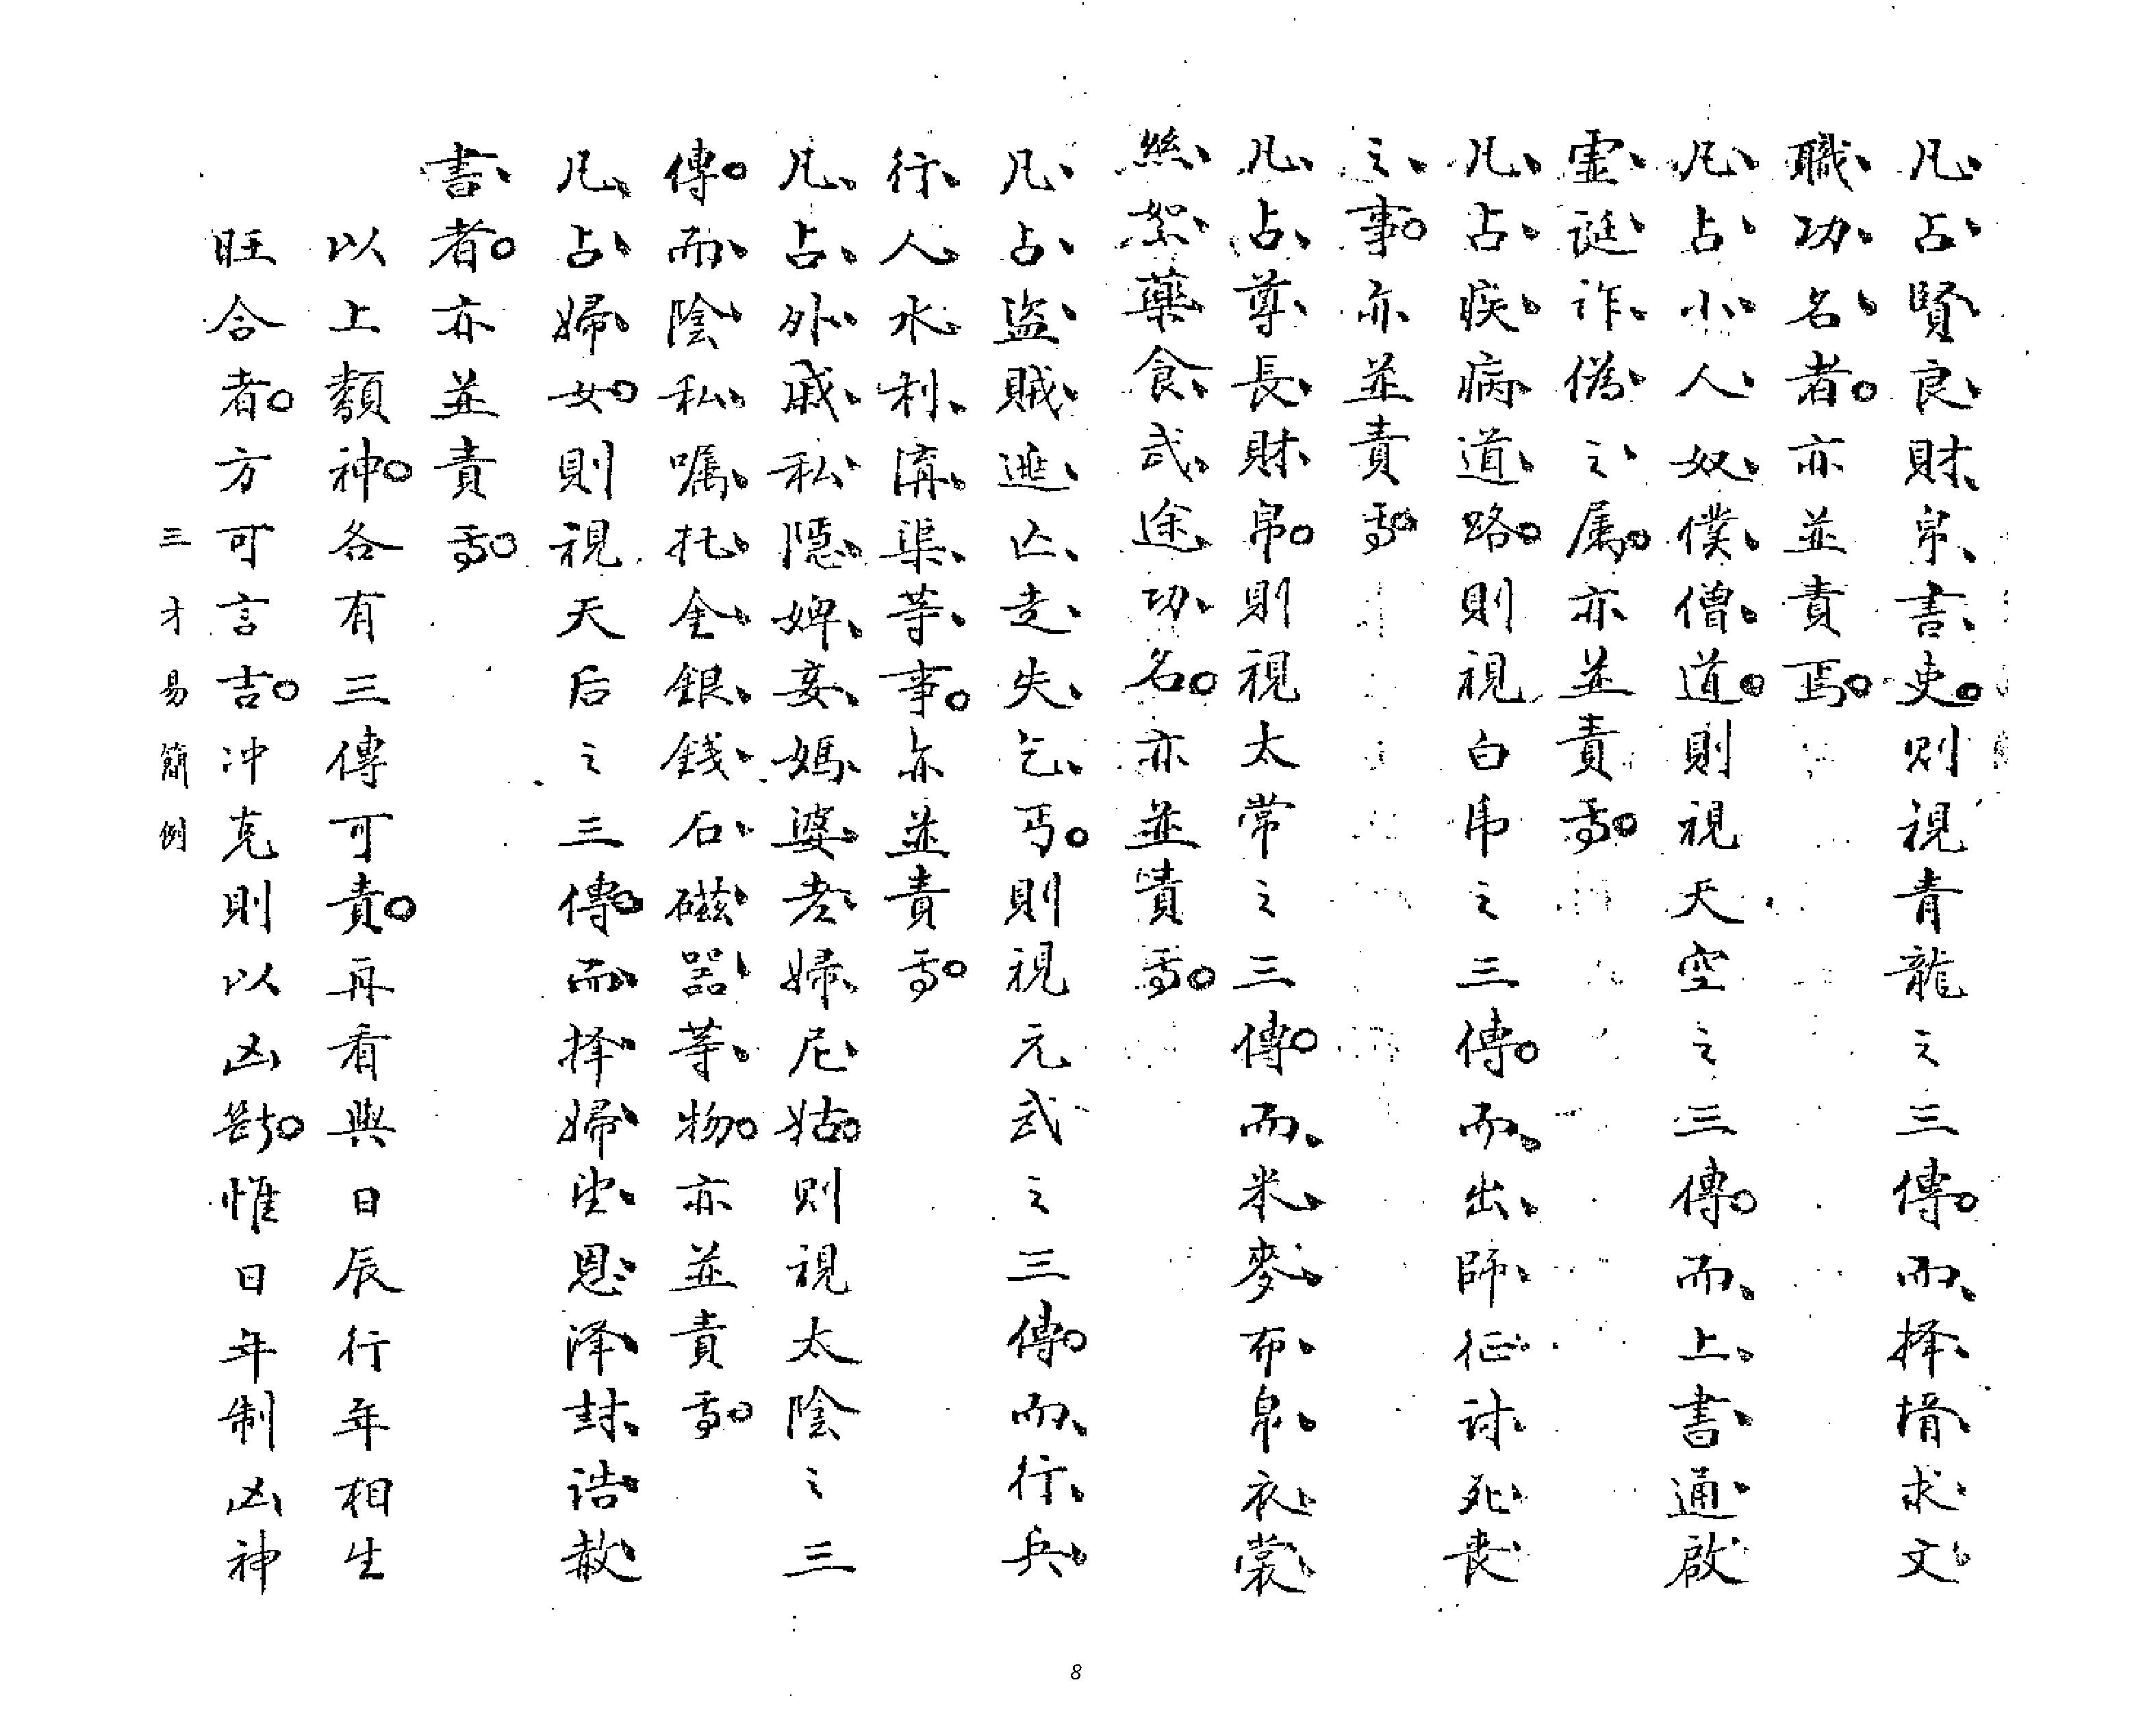 凡占賢良財帛書吏。則視青龍之三傳。而擇壻求文
職功名者。亦並責焉。
凡占小人奴僕僧道。則視天空之三傳。而上書通啟
虚誕詐偽之属。亦並責焉。
凡占疾病道路。則視白虎之三傳。而出師征討死喪
之事。亦並責焉。
凡占尊長財帛。則視太常之三傳。而米麥布帛衣裳
絲絮藥食武途功名。亦並責焉。
凡占盜賊逃亡走失乞丐。則視元武之三傳。而行兵
行人水利溝渠等事。亦並責焉。
凡占外戚私隱婢妾媽婆老婦尼姑。則視太陰之三
傳。而陰私嘱托金銀錢石磁器等物。亦並責焉。
凡占婦女。則視天后之三傳。而擇婦望恩泽封诰赦
書者。亦並責焉。
以上類神。各有三傳可責。再看與日辰行年相生
旺合者。方可言吉。冲克則以凶断。惟日年制凶神
三才易簡例
8